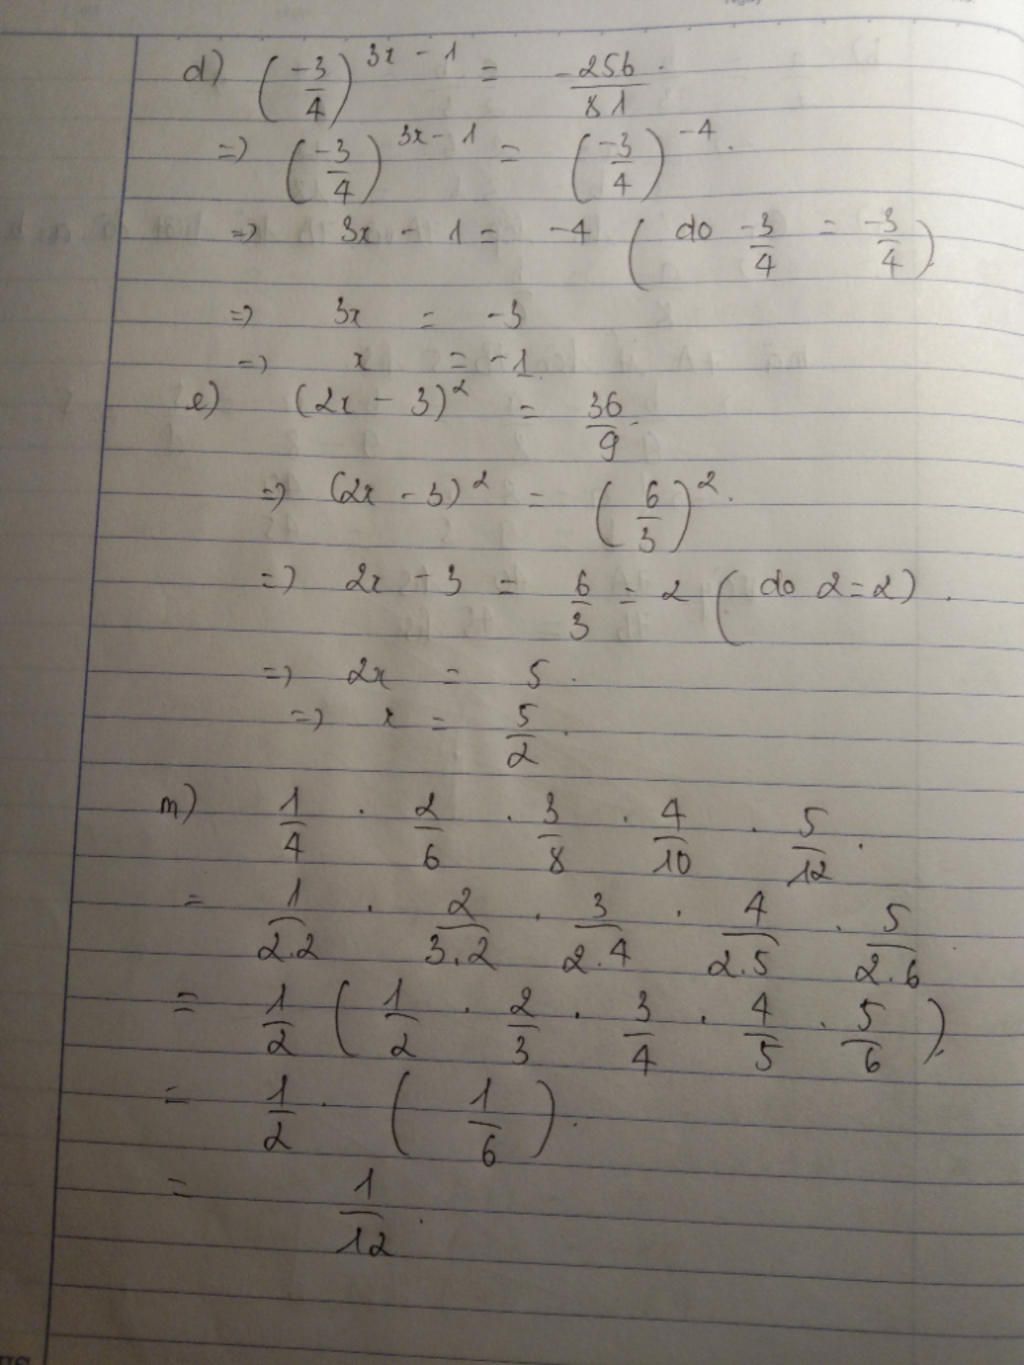 d) (-3/4)^(3x - 1) = -256/81.
=> (-3/4)^(3x - 1) = (-3/4)^(-4).
=> 3x - 1 = -4 (do -3/4 = -3/4).
=> 3x = -3
=> x = -1.
e) (2x - 3)^2 = 36/9.
=> (2x - 3)^2 = (6/3)^2.
=> 2x - 3 = 6/3 = 2 (do 2=2).
=> 2x = 5.
=> x = 5/2.
m) 1/4 . 2/6 . 3/8 . 4/10 . 5/12.
= 1/2.2 . 2/3.2 . 3/2.4 . 4/2.5 . 5/2.6
= 1/2 (1/2 . 2/3 . 3/4 . 4/5 . 5/6).
= 1/2 . (1/6).
= 1/12.